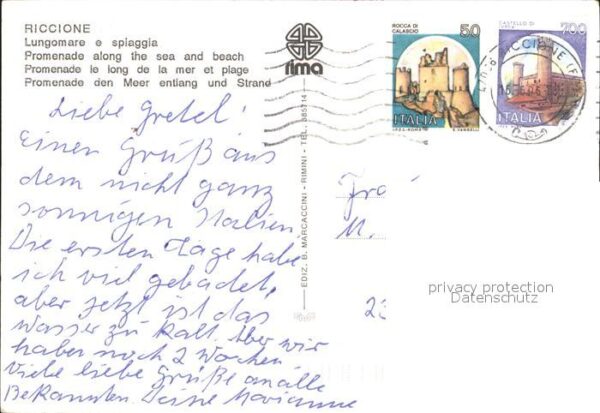 RICCIONE
Lungomare e spiaggia
Promenade along the sea and beach
Promenade le long de la mer et plage
Promenade den Meer entlang und Strand
rima
Liebe Gretel!
Einen Gruß aus
dem nicht ganz
sonnigen Italien.
Die ersten Tage habe
ich viel gebadet,
aber jetzt ist das
Wasser zu kalt. Aber wir
haben noch 2 Wochen
Viele liebe Grüße an alle
Bekannten. Deine Marianne
EDIZ. B. MARCACCINI - RIMINI - TEL. 385114
ROCCA DI
CALASCIO
50
ITALIA
CASTELLO DI
700
ITALIA
RICCIONE
Fra
M.
23
privacy protection
Datenschutz